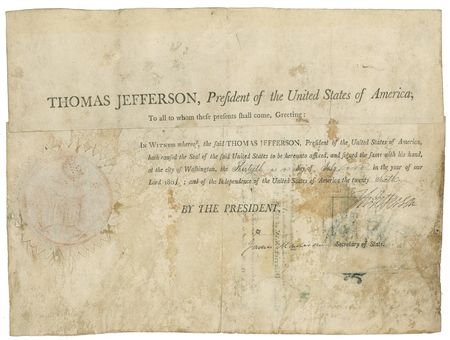 THOMAS JEFFERSON, Preſident of the United States of America,
To all to whom theſe preſents ſhall come, Greeting:
IN WITNESS whereof, the ſaid THOMAS JEFFERSON, Preſident of the United States of America,
hath cauſed the Seal of the ſaid United States to be hereunto affixed, and ſigned the ſame with his hand,
at the city of Waſhington, the day of July in the year of our
Lord 1801; and of the Independence of the United States of America the twenty
Th Jefferson
BY THE PRESIDENT,
James Madison Secretary of State.